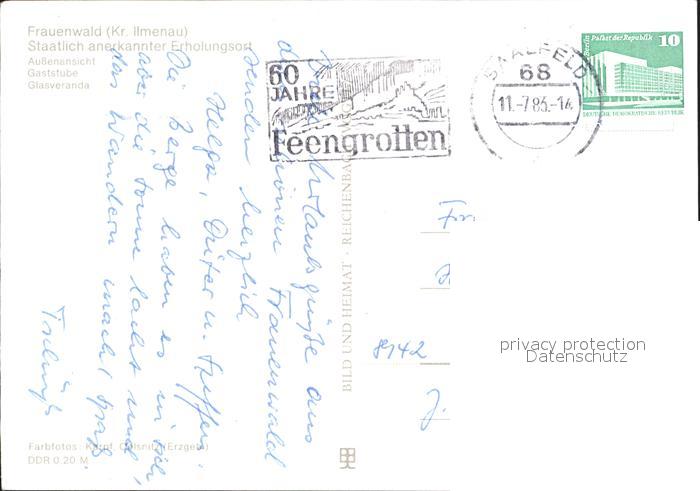 Frauenwald (Kr. Ilmenau)
Staatlich anerkannter Erholungsort
Außenansicht
Gaststube
Glasveranda
60
JAHRE
Feengrotten
SAALFELD
68
11.-7.85.-14
Berlin Palast der Republik 10
DEUTSCHE DEMOKRATISCHE REPUBLIK
Urlaubsgrüße aus
dem schönen Frauenwald
senden herzlich
Helga, Dieter u. Steffen.
Die Berge haben es in sich,
aber die Sonne lacht und
das Wandern macht Spaß.
Tschüß
BILD UND HEIMAT · REICHENBACH
8142
privacy protection
Datenschutz
Farbfotos: Kärpf, Oelsnitz (Erzgeb.)
DDR 0.20 M